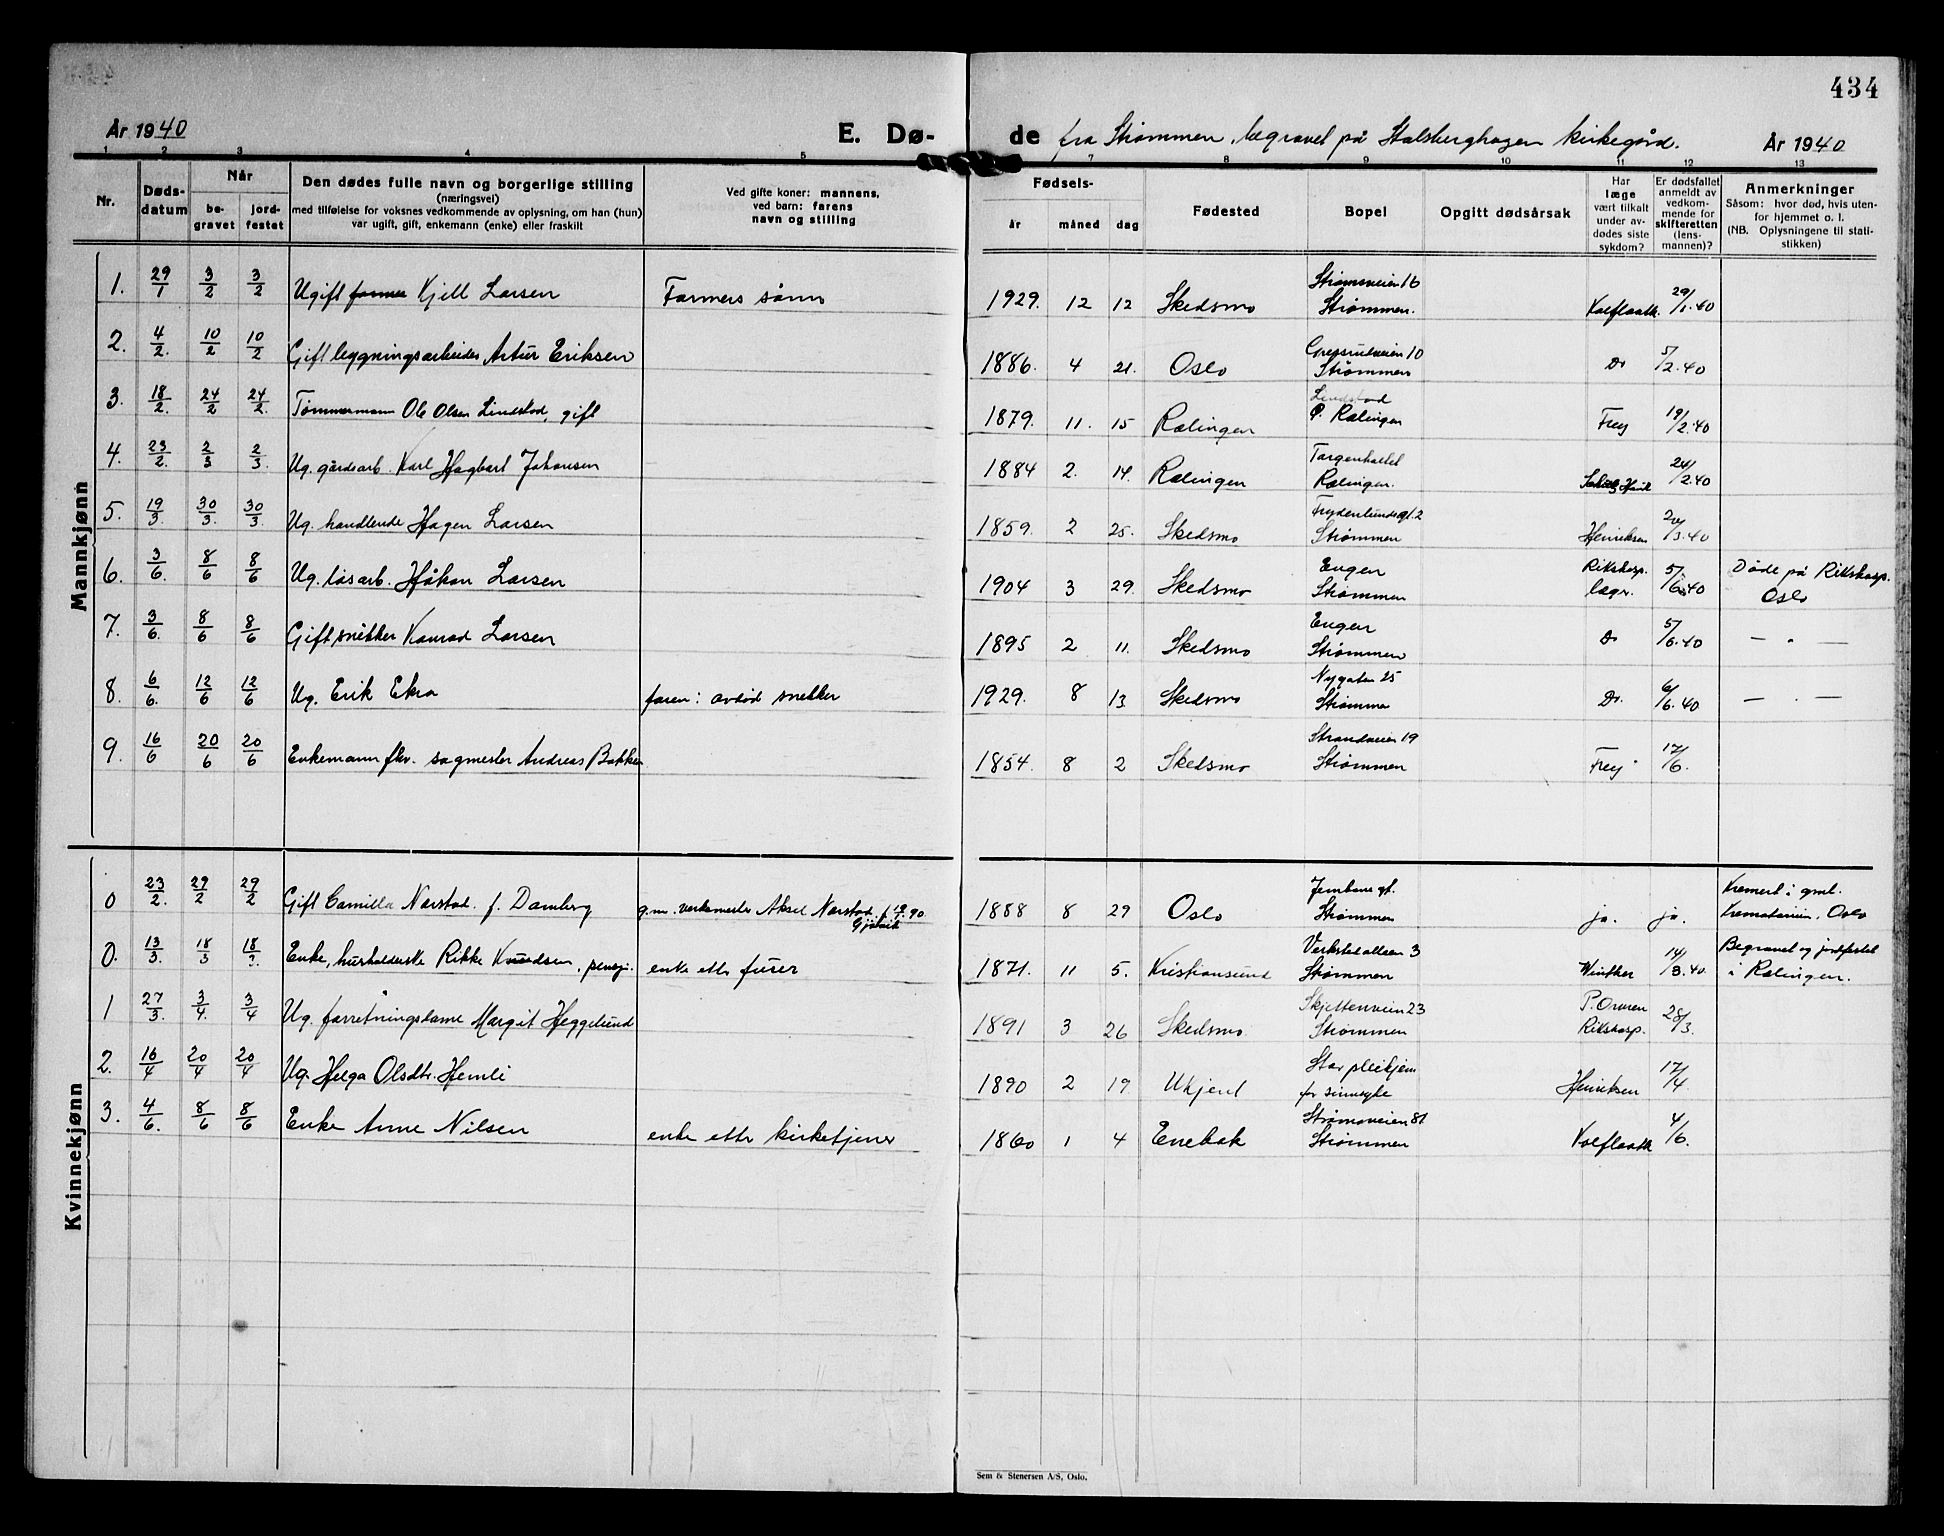 434
År 1940
E. Dø-
de fra Strømmen, begravet på Stalsberghagen kirkegård.
År 1940
1 2 3 4 5 7 8 9 10 11 12 13
Nr.
Døds-
datum
Når
be-
gravet
jord-
festet
Den dødes fulle navn og borgerlige stilling
(næringsvei)
med tilføielse for voksnes vedkommende av oplysning, om han (hun)
var ugift, gift, enkemann (enke) eller fraskilt
Ved gifte koner: mannens,
ved barn: farens
navn og stilling
Fødsels-
år måned dag
Fødested
Bopel
Opgitt dødsårsak
Har
læge
vært tilkalt
under av-
dødes siste
sykdom?
Er dødsfallet
anmeldt av
vedkom-
mende for
skifteretten
(lens-
mannen)?
Anmerkninger
Såsom: hvor død, hvis uten-
for hjemmet o. l.
(NB. Oplysningene til stati-
stikken)
Mannkjønn
1. 29/1 3/2 3/2 Ugift farmer Kjell Larsen Farmers sønn 1929. 12 12 Skedsmo Strømsveien 16
Strømmen. Kolflaath. 29/1.40
2. 4/2. 10/2 10/2 Gift bygningsarbeider Artur Eriksen 1886. 4 21. Oslo
Strømmen Do 5/2.40
3. 18/2. 24/2 24/2. Tømmermann Ole Olsen Lindstad, gift 1879. 11. 15 Rælingen Lindstad
P. Rælingen Frey 19/2.40
4. 23/2. 2/3 2/3. Ug. gårdsarb. Karl Hagbart Johansen 1884 2. 14. Rælingen
Rælingen. 24/2.40
5. 19/3 30/3. 30/3. Ug. handlende Hagen Larsen 1859. 2 25. Skedsmo Frydenlundsgt. 2
Strømmen Henriksen 20/3.40
6. 3/6. 8/6 8/6 Ug. løsarb. Håkon Larsen 1904 3 29. Skedsmo Engen
Strømmen Rikshosp.
læger. 5/6.40 Døde på Rikshosp.
Oslo
7. 3/6. 8/6 8/6 Gift snekker Konrad Larsen 1895 2 11. Skedsmo Engen
Strømmen Do 5/6.40 — " —
8. 6/6. 12/6 12/6 Ug. Erik Ekra faren: avdød snekker 1929. 8 13 Skedsmo Nygaten 25
Strømmen Do. 6/6.40 — . —
9. 16/6 20/6 20/6 Enkemann fhv. sagmester Andreas Bakken 1854. 8 2 Skedsmo Strandveien 19
Strømmen Frey 17/6.
Kvinnekjønn
0 23/2. 29/2 29/2 Gift Camilla Narstad f. Damberg g.m. verksmester Aksel Narstad f. 19/9.90
Gjøvik 1888 8 29 Oslo Jernbanegt.
Strømmen ja. ja. Kremert i gml.
Krematorium, Oslo
0. 13/3. 18/3 18/3. Enke, husholderske Rikke Knudsen, pensj. enke etter fyrer 1871. 11 5. Kristiansund Verkstedalleen 3
Strømmen Winther 14/3.40. Begravet og jordfestet
i Rælingen.
1 27/3. 3/4. 3/4 Ug. forretningsdame Margit Heggelund 1891 3 26 Skedsmo Skjettenveien 23
Strømmen
Rikshosp. 28/3.
2. 16/4 20/4 20/4 Ug. Helga Olsdtr. Hemli 1890 2 19 Ukjent pleiehjem
for sinnsyke Henriksen 17/4
3. 4/6. 8/6 8/6 Enke Anne Nilsen enke etter kirketjener 1860 1 4 Enebak Strømsveien 81
Strømmen Kolflaath 4/6.
Sem & Stenersen A/S, Oslo.